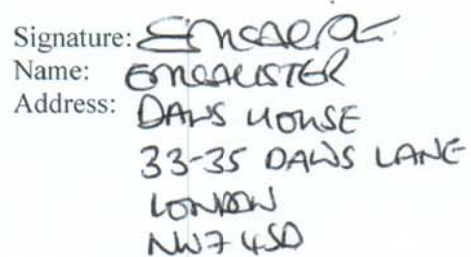 Signature:
Name: EMCALISTER
Address: DAWS HOUSE
33-35 DAWS LANE
LONDON
NW7 4SD